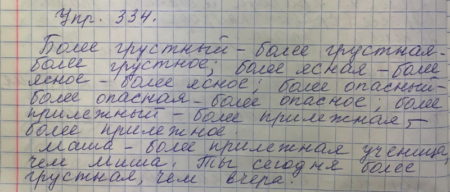 Упр. 334.
Более грустный - более грустная -
более грустное; более ясная - более
ясное - более ясное; более опасный -
более опасная - более опасное; более
прилежный - более прилежная -
более прилежное.
Маша - более прилежная ученица,
чем Миша. Ты сегодня более
грустная, чем вчера.